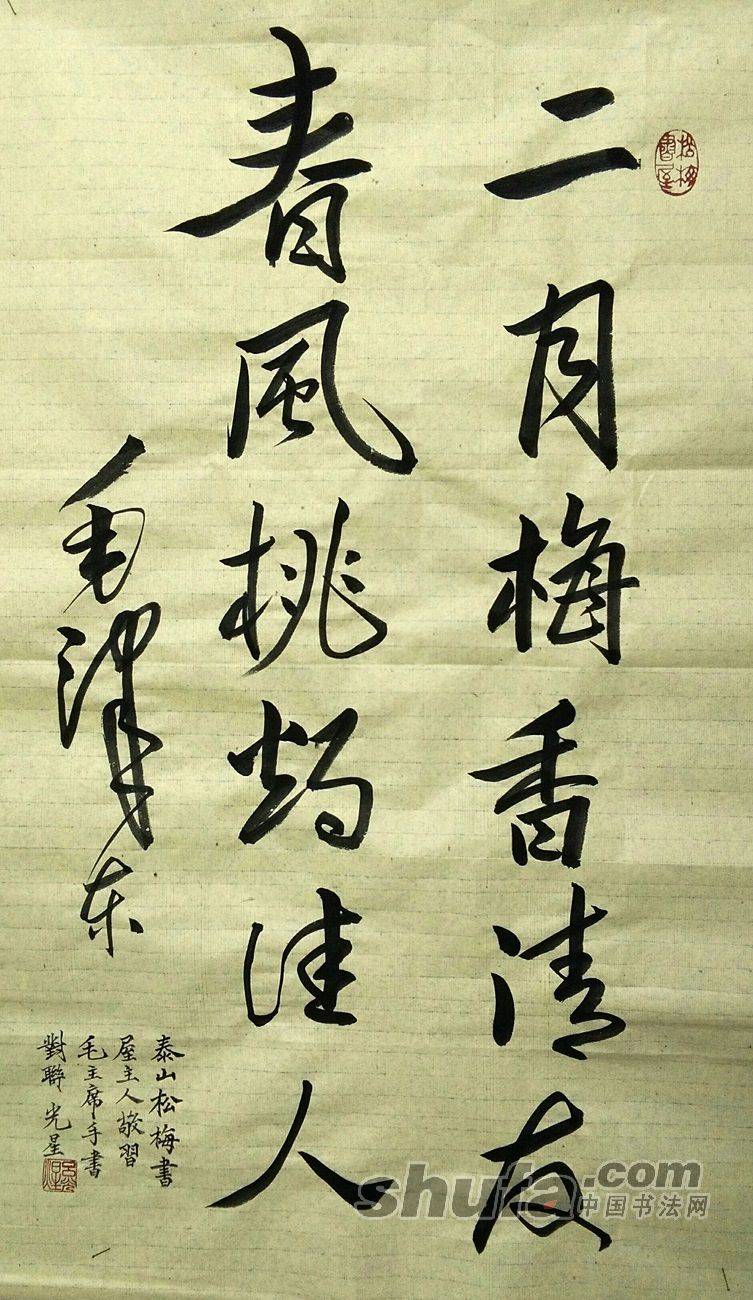 二月梅香清友
春風桃灼佳人
毛澤东
泰山松梅書
屋主人敬習
毛主席手書
對聯 光星
松梅書屋
shufa.com
中国书法网